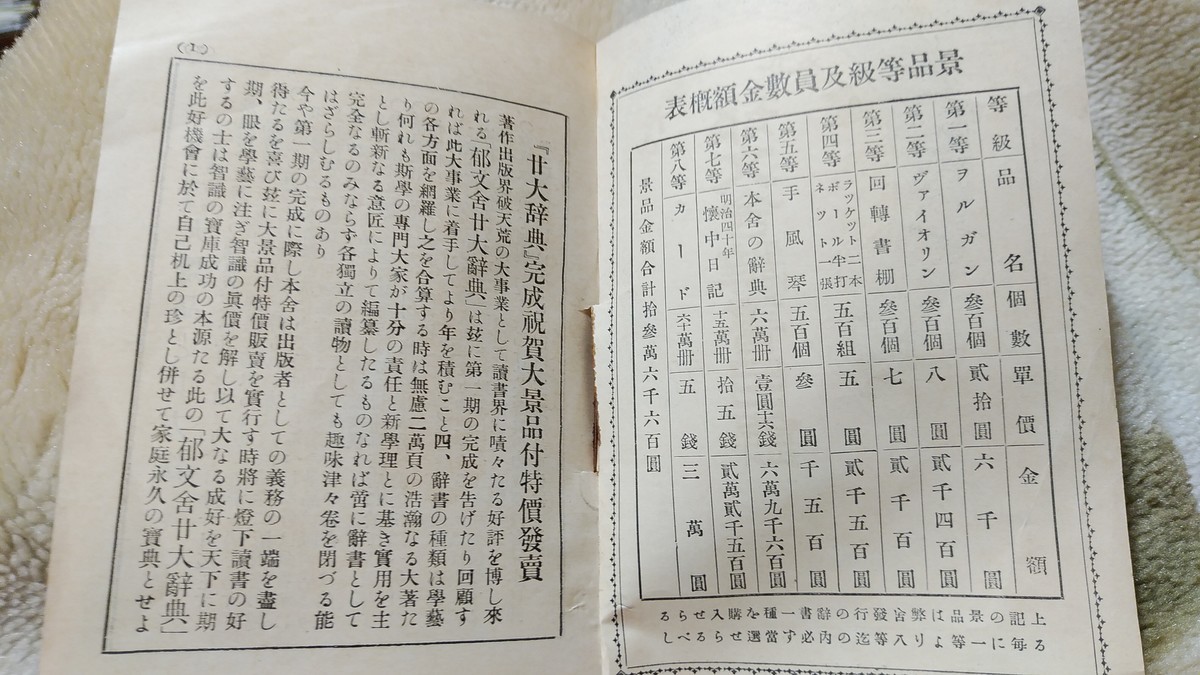 景品等級及員數金額概表
等級 品名 個數 單價 金額
第一等 ヲルガン 參百個 貳拾圓 六千圓
第二等 ヴァイオリン 參百個 八圓 貳千四百圓
第三等 回轉書棚 參百個 七圓 貳千百圓
第四等 ラツケツト二本 ボール半打 ネツト一張 五百組 五圓 貳千五百圓
第五等 手風琴 五百個 參圓 千五百圓
第六等 本舍の辭典 六萬冊 壹圓十六錢 六萬九千六百圓
第七等 明治四十年 懷中日記 十五萬冊 拾五錢 貳萬貳千五百圓
第八等 カード 六十萬冊 五錢 三萬圓
景品金額合計拾參萬六千六百圓
上記の景品は弊舍發行の辭書一種を購入せらる
る每に一等より八等迄の內必ず當選せらるべし
(1)
『廿大辞典』完成祝賀大景品付特價發賣
著作出版界破天荒の大事業として讀書界に嘖々たる好評を博し來
れる「郁文舍廿大辭典」は玆に第一期の完成を告げたり回顧す
れば此大事業に着手してより年を積むこと四、辭書の種類は學藝
の各方面を網羅し之を合算する時は無慮二萬頁の浩瀚なる大著た
り何れも斯學の專門大家が十分の責任と新學理とに基き實用を主
とし斬新なる意匠によりて編纂したるものなれば啻に辭書として
完全なるのみならず各獨立の讀物としても趣味津々卷を閉づる能
はざらしむるものあり
今や第一期の完成に際し本舍は出版者としての義務の一端を盡し
得たるを喜び玆に大景品付特價販賣を實行す時將に燈下讀書の好
期、眼を學藝に注ぎ智識の眞價を解し以て大なる成好を天下に期
するの士は智識の寶庫成功の本源たる此の「郁文舍廿大辭典」
を此好機會に於て自己机上の珍とし併せて家庭永久の寶典とせよ